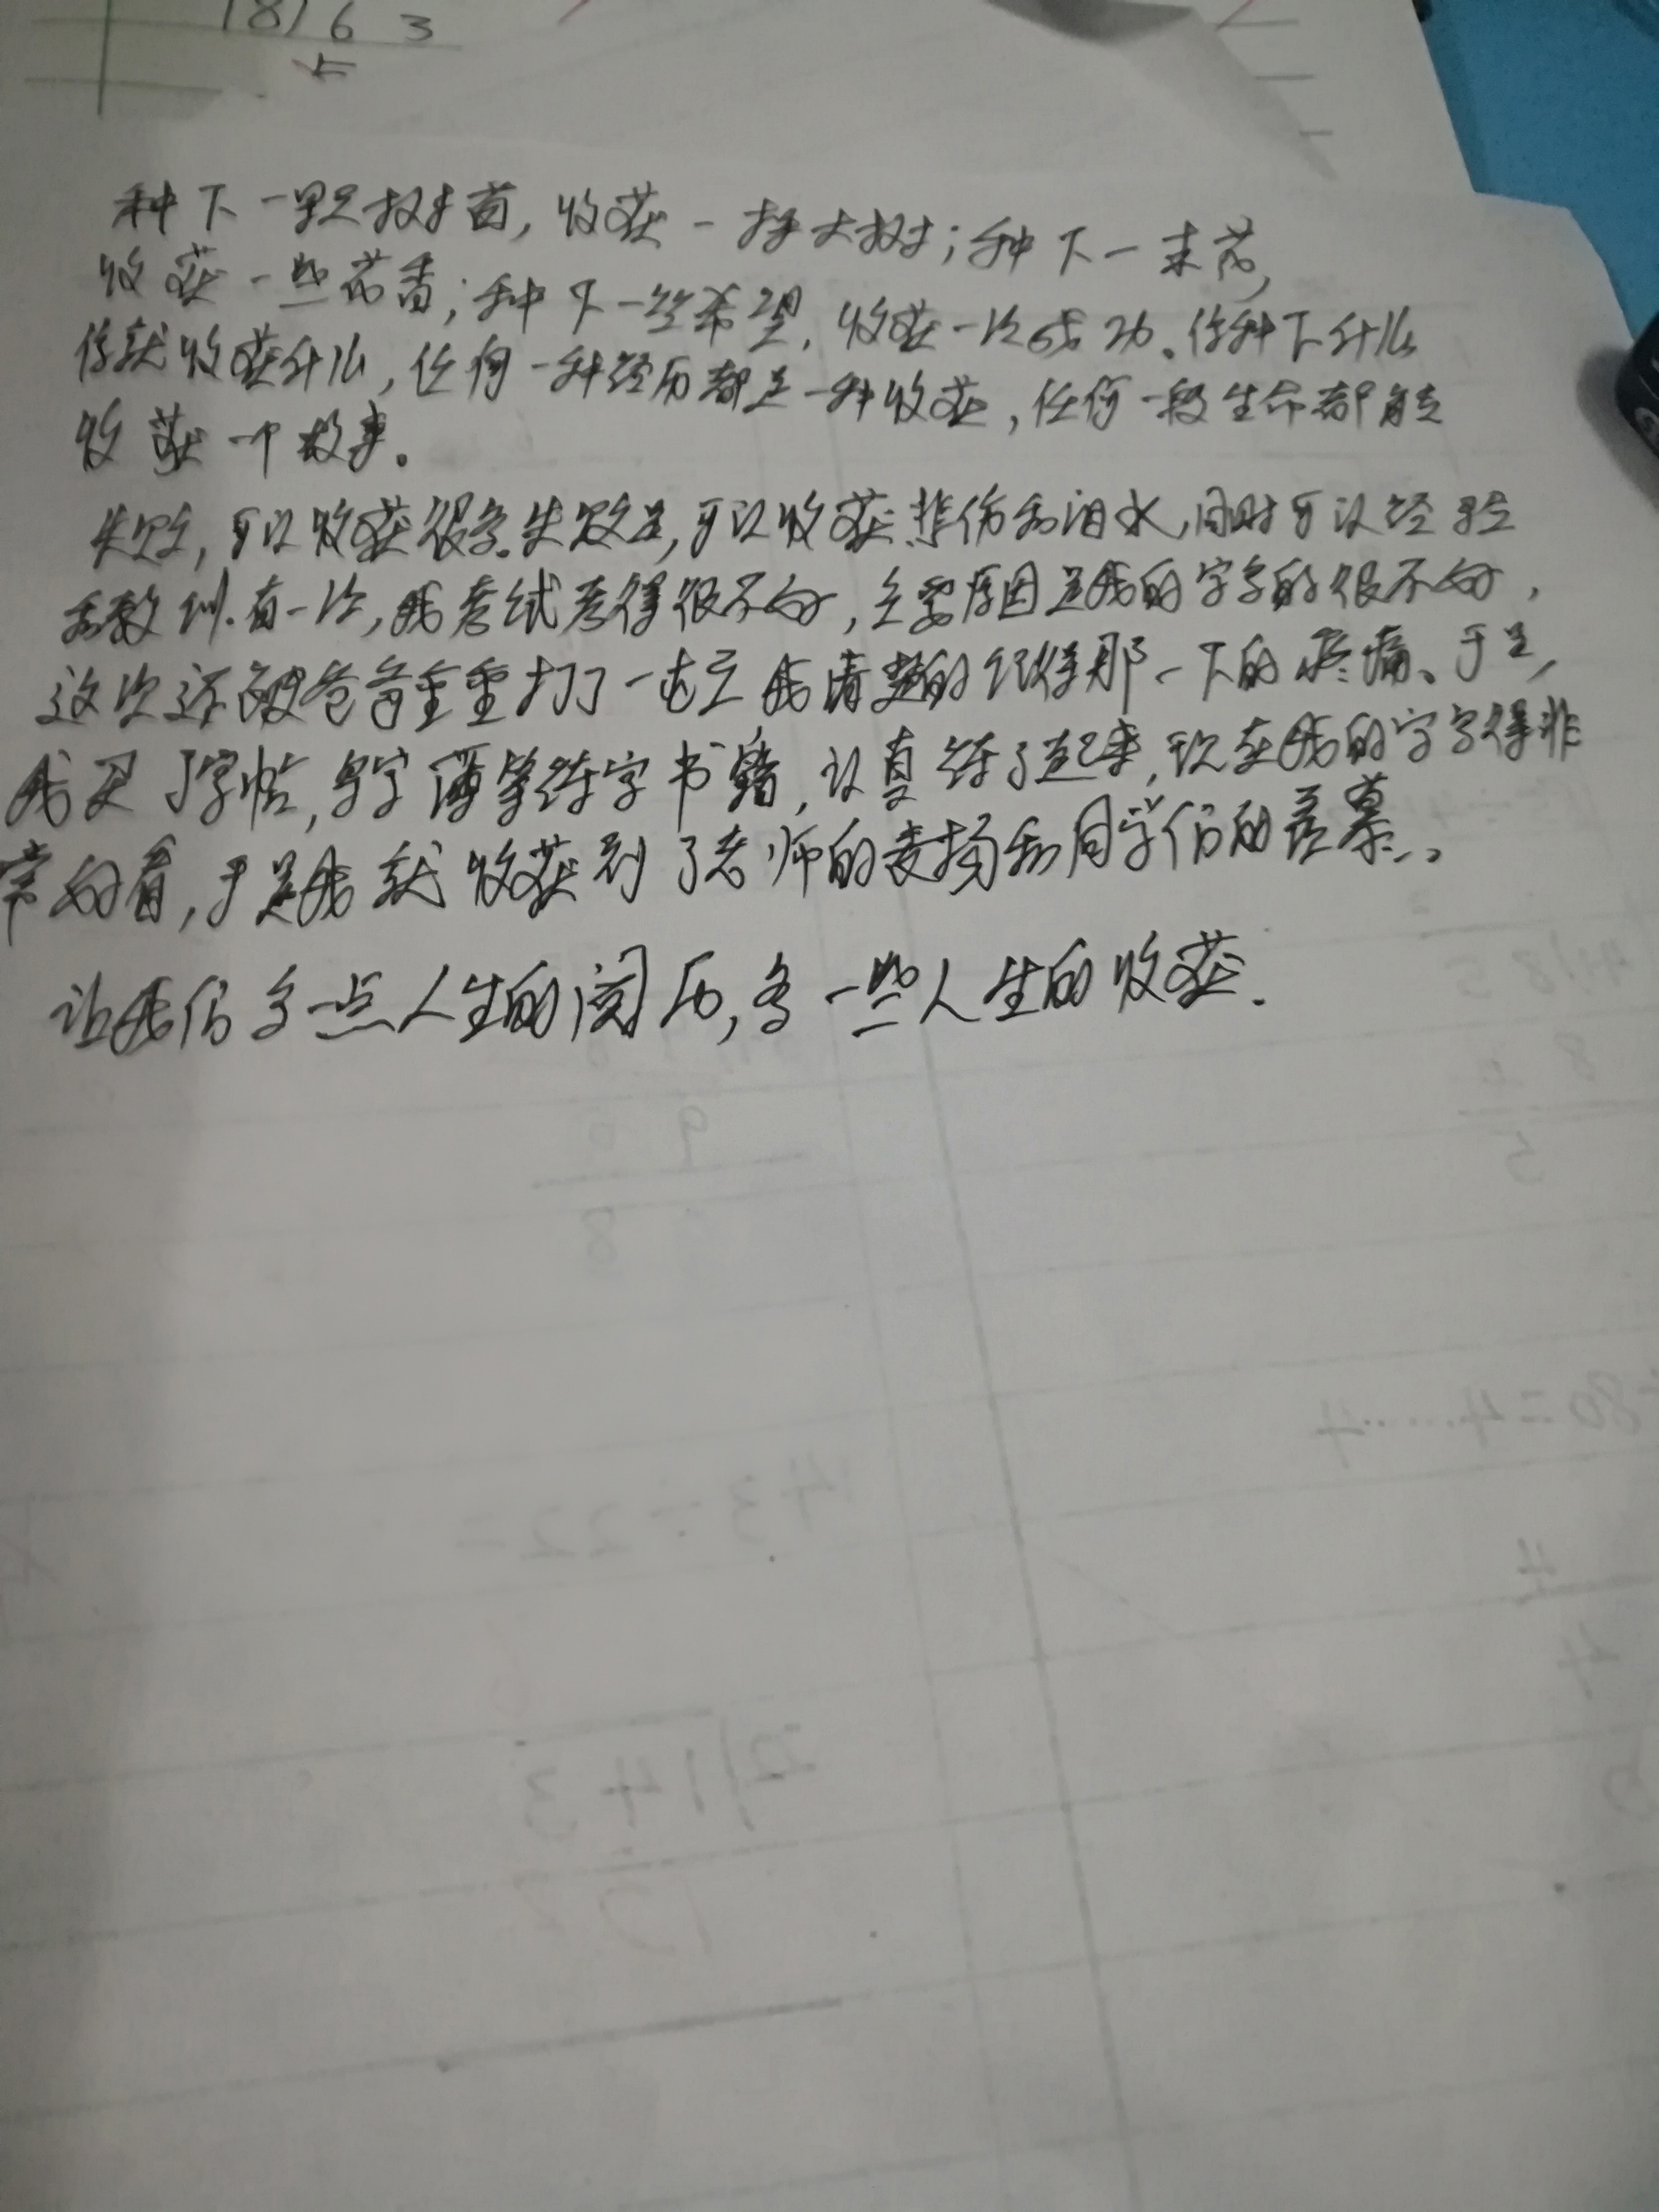 18)63
种下一颗树苗，收获一棵大树；种下一束花，
收获一些花香；种下一丝希望，收获一次成功。你种下什么
你就收获什么，任何一种经历都是一种收获，任何一段生命都能
收获一个故事。
失败，可以收获很多。失败是，可以收获悲伤和泪水，同时可以经验
和教训。有一次，我考试考得很不好，主要原因是我的字写的很不好，
这次还被爸爸重重打了一 我清楚的记得那一下的疼痛、于是，
我买了字帖，写字薄等练字书籍，认真练了起来，现在我的字写得非
常好看，于是我就收获到了老师的表扬和同学们的羡慕…
让我们多一点人生的阅历，多一些人生的收获.